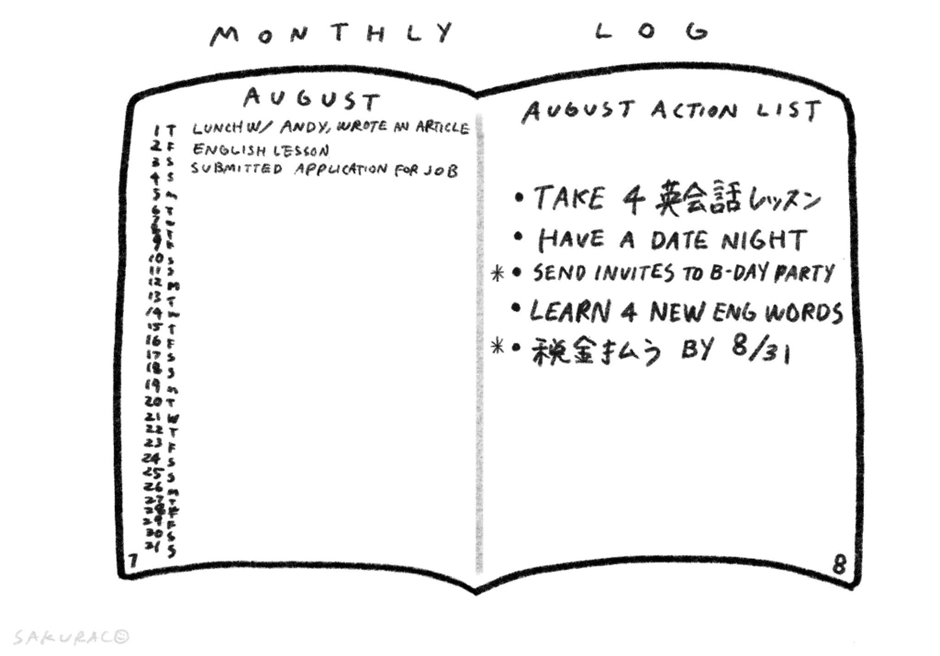 MONTHLY LOG
AUGUST
1 T LUNCH W/ ANDY, WROTE AN ARTICLE
2 F ENGLISH LESSON
3 S SUBMITTED APPLICATION FOR JOB
4 S
5 M
6 T
7 W
8 T
9 F
10 S
11 S
12 M
13 T
14 W
15 T
16 F
17 S
18 S
19 M
20 T
21 W
22 T
23 F
24 S
25 S
26 M
27 T
28
29 F
30 S
31 S
7
AUGUST ACTION LIST
• TAKE 4 英会話レッスン
• HAVE A DATE NIGHT
* • SEND INVITES TO B-DAY PARTY
• LEARN 4 NEW ENG WORDS
* • 税金払う BY 8/31
8
SAKURACO